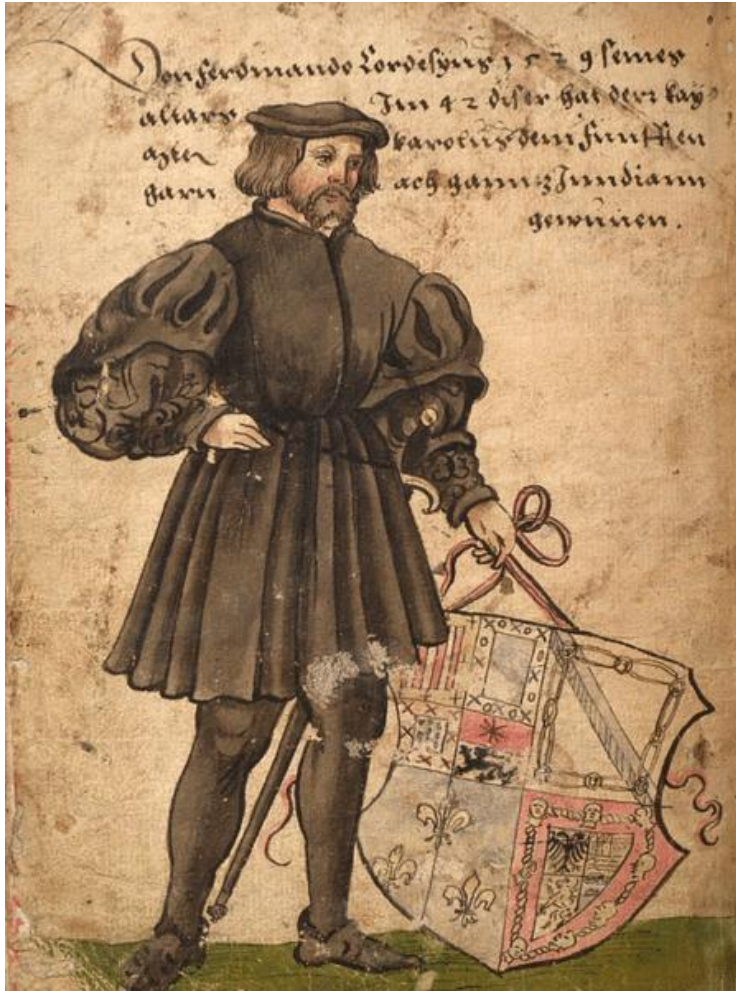 Don ferdinando Cordesyus 1529 seines
alttars Im 42 diser hat der kay
karolus dem funfften
garn ach gannz Inndiann
gewunen.